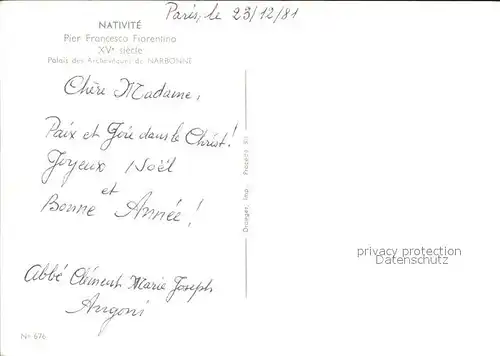 Paris, le 23/12/81
NATIVITÉ
Pier Francesco Fiorentino
XVe siècle
Palais des Archevêques de NARBONNE
Chère Madame,
Paix et Joie dans le Christ!
Joyeux Noël
et
Bonne Année!
Abbé Clément Marie Joseph
Angoni
No 676
Draeger, Imp. Procédé
privacy protection
Datenschutz